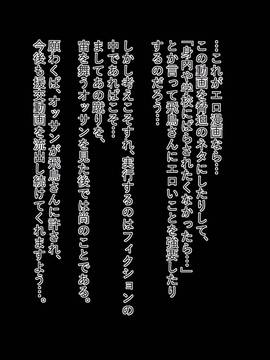 …これがエロ漫画なら…
この動画を脅迫のネタにしたりして、
「身内や学校にばらされたくなかったら…」
とか言って飛鳥さんにエロいことを強要したり
するのだろう…。
しかし考えこそすれ、実行するのはフィクションの
中であればこそ…。
ましてあの蹴りを、
宙を舞うオッサンを見た後では尚のことである。
願わくば、オッサンが飛鳥さんに許され、
今後も援交動画を流出し続けてくれますよう…。